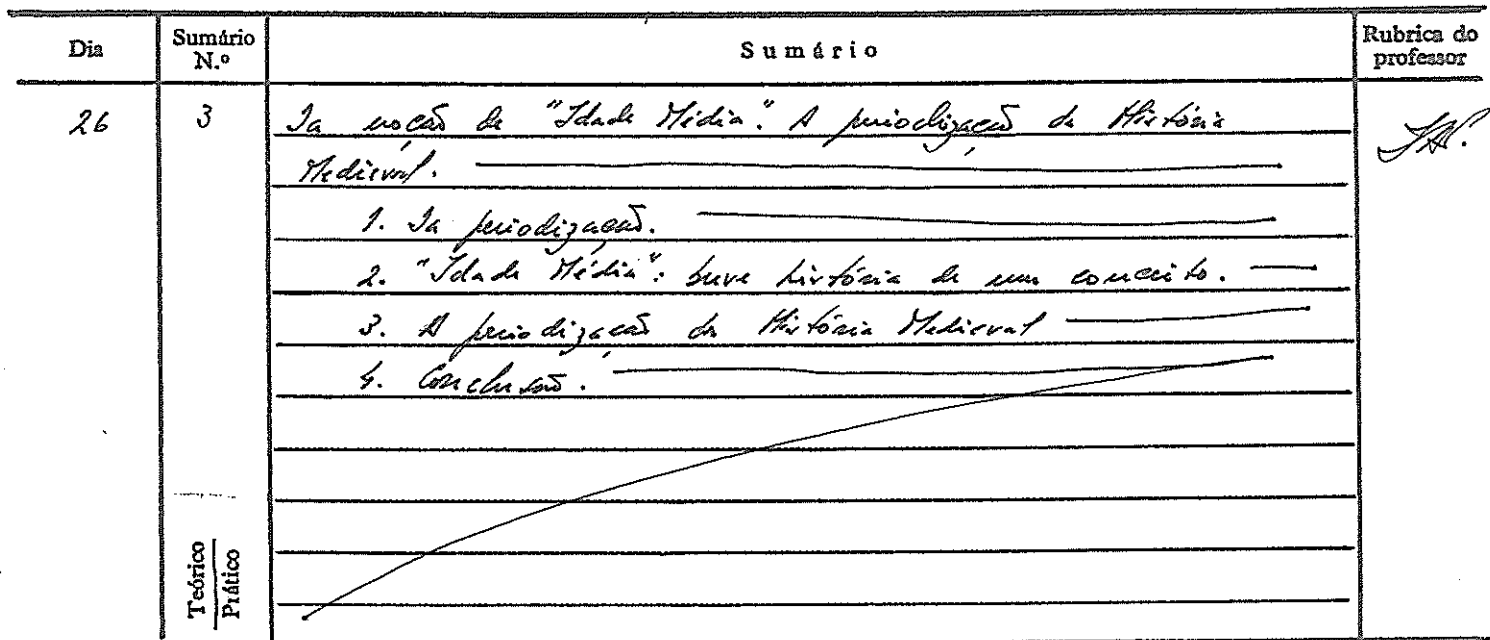 Dia
Sumário N.º
Sumário
Rubrica do professor
26
3
Da noção de "Idade Média". A periodização da História
Medieval.
1. Da periodização.
2. "Idade Média": breve história de um conceito.
3. A periodização da História Medieval
4. Conclusão.
Teórico
Prático